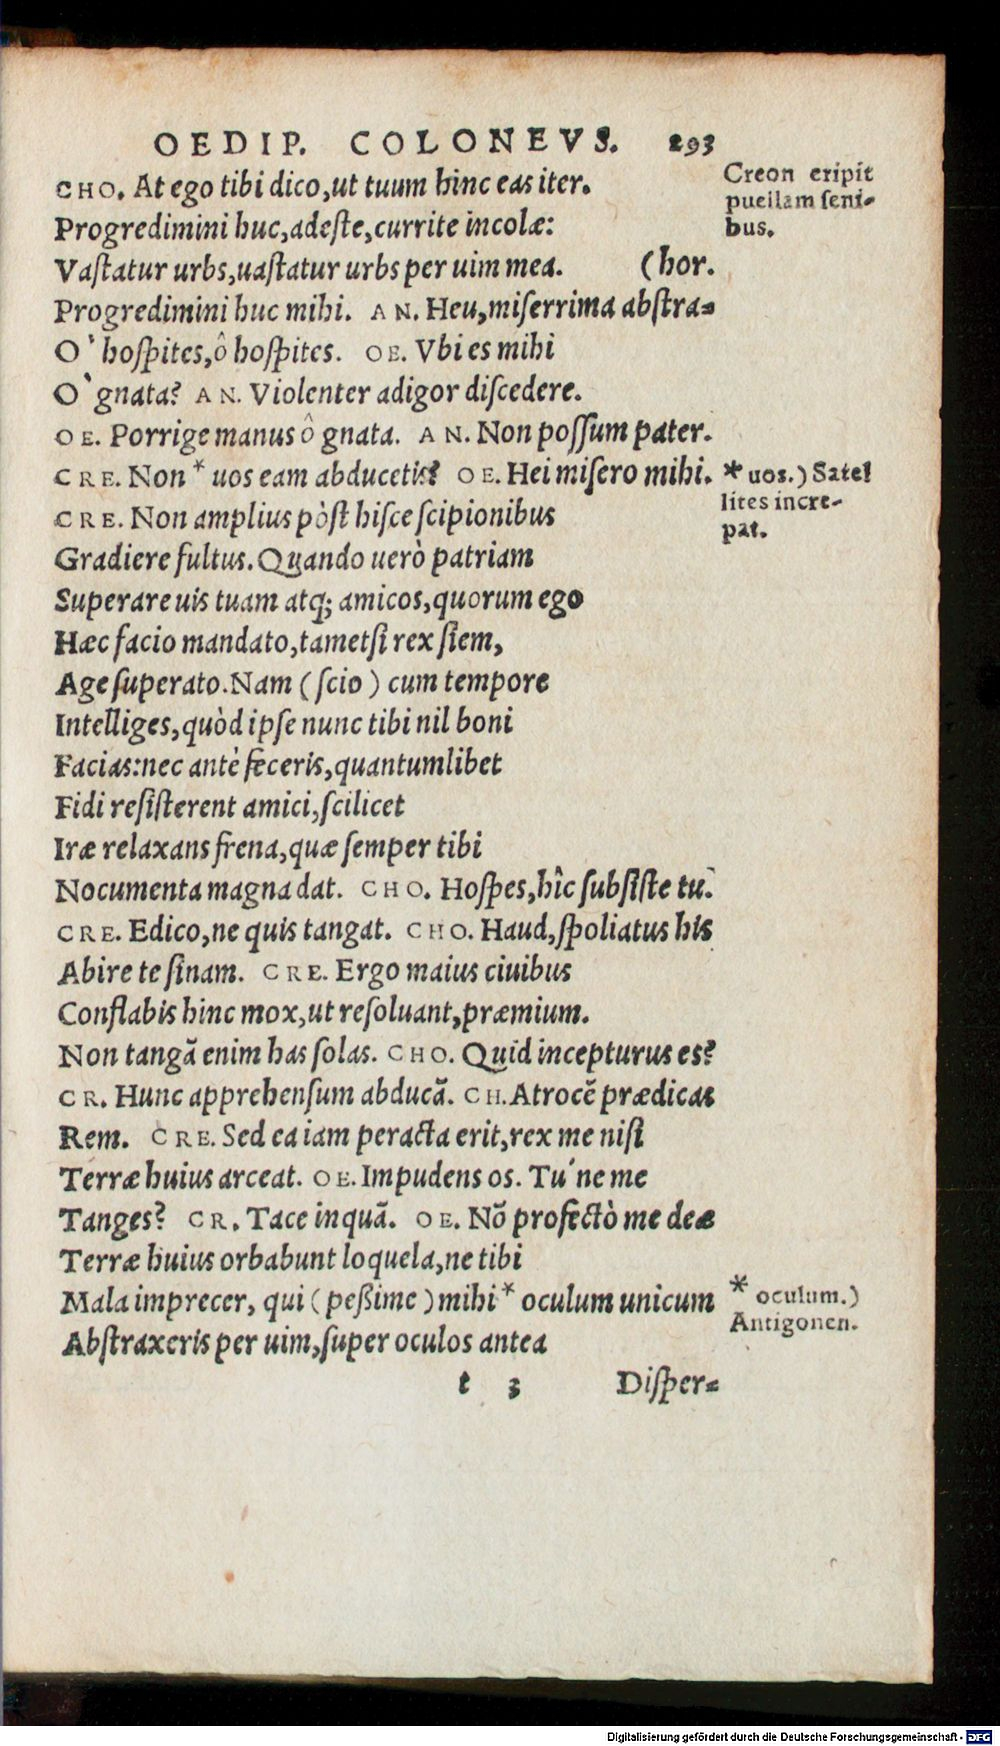 OEDIP. COLONEVS. 293
CHO. At ego tibi dico, ut tuum hinc eas iter.
Creon eripit
puellam seni-
bus.
Progredimini huc, adeſte, currite incolæ:
Vaſtatur urbs, uaſtatur urbs per uim mea. (hor.
Progredimini huc mihi. AN. Heu, miſerrima abſtra-
O' hoſpites, ô hoſpites. OE. Vbi es mihi
O' gnata? AN. Violenter adigor diſcedere.
OE. Porrige manus ô gnata. AN. Non poſſum pater.
CRE. Non * uos eam abducetis? OE. Hei miſero mihi.
* uos.) Satel
lites incre-
pat.
CRE. Non amplius pòſt hiſce ſcipionibus
Gradiere fultus. Quando uerò patriam
Superare uis tuam atq; amicos, quorum ego
Hæc facio mandato, tametſi rex ſiem,
Age ſuperato. Nam (ſcio) cum tempore
Intelliges, quòd ipſe nunc tibi nil boni
Facias: nec antè feceris, quantumlibet
Fidi reſiſterent amici, ſcilicet
Iræ relaxans frena, quæ ſemper tibi
Nocumenta magna dat. CHO. Hoſpes, hîc ſubſiſte tu.
CRE. Edico, ne quis tangat. CHO. Haud, ſpoliatus his
Abire te ſinam. CRE. Ergo maius ciuibus
Conflabis hinc mox, ut reſoluant, præmium.
Non tangã enim has ſolas. CHO. Quid incepturus es?
CR. Hunc apprehenſum abducã. CH. Atrocẽ prædicas
Rem. CRE. Sed ea iam peracta erit, rex me niſi
Terræ huius arceat. OE. Impudens os. Tu'ne me
Tanges? CR. Tace inquã. OE. Nõ profectò me deæ
Terræ huius orbabunt loquela, ne tibi
Mala imprecer, qui (peßime) mihi * oculum unicum
* oculum.)
Antigonen.
Abſtraxeris per uim, ſuper oculos antea
t 3 Diſper-
Digitalisierung gefördert durch die Deutsche Forschungsgemeinschaft - DFG